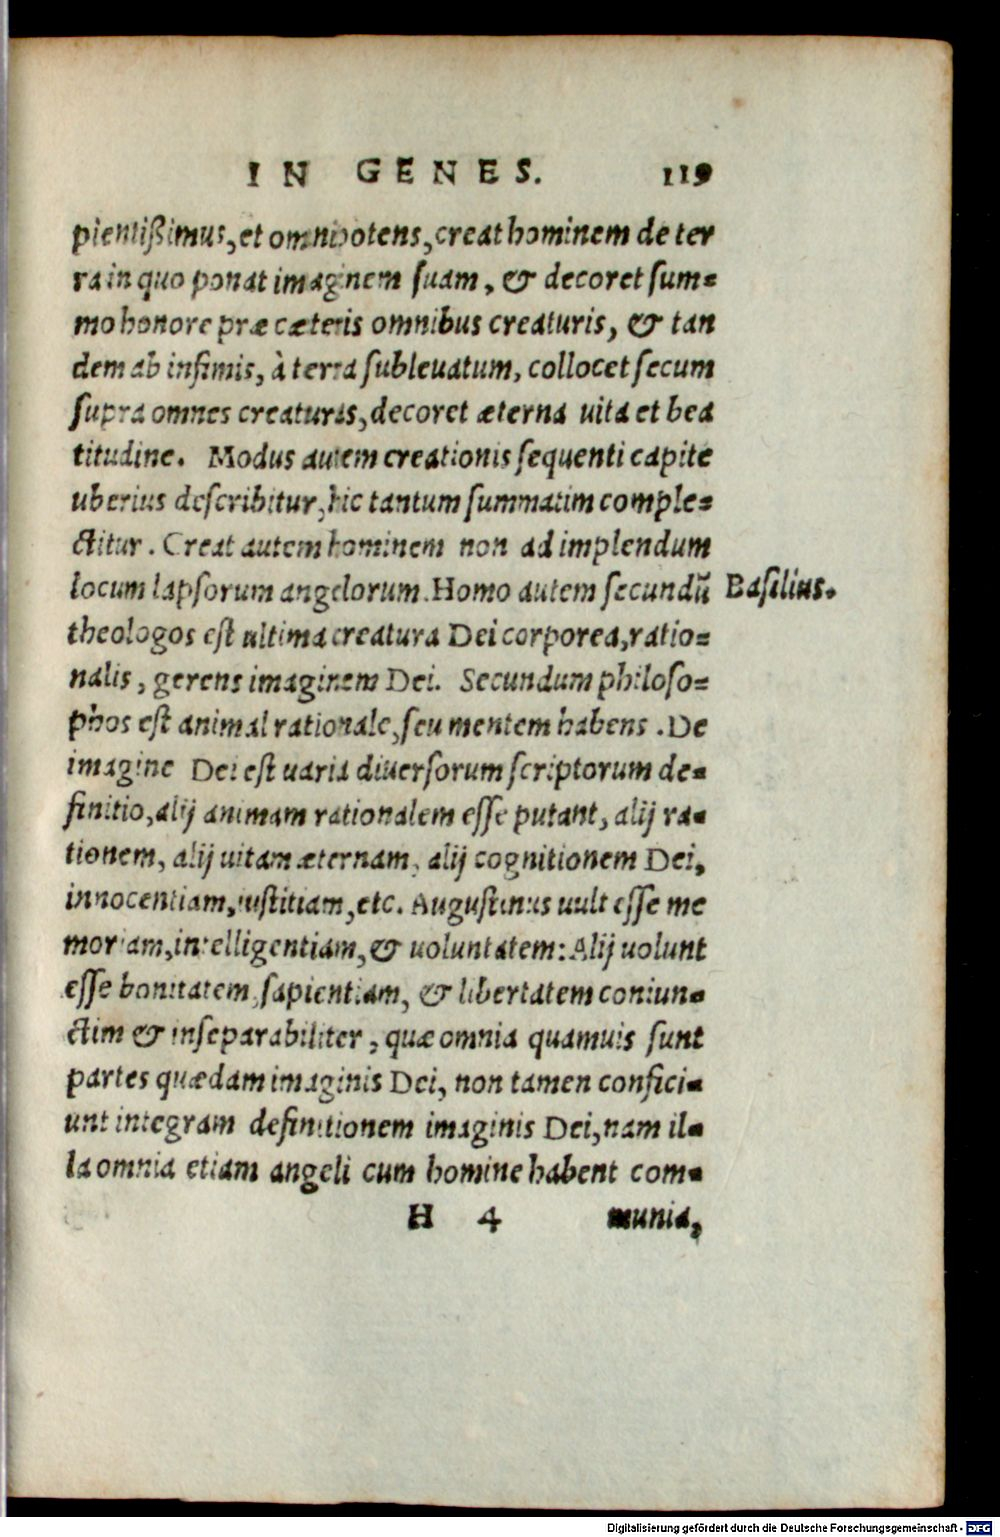 IN GENES. 119
pientißimus, et omnipotens, creat hominem de ter
ra in quo ponat imaginem suam, & decoret sum=
mo honore præ cæteris omnibus creaturis, & tan
dem ab infimis, à terra subleuatum, collocet secum
supra omnes creaturas, decoret æterna uita et bea
titudine. Modus autem creationis sequenti capite
uberius describitur, hic tantum summatim comple=
ctitur. Creat autem hominem non ad implendum
locum lapsorum angelorum. Homo autem secundũ Basilius.
theologos est ultima creatura Dei corporea, ratio=
nalis, gerens imaginem Dei. Secundum philoso=
phos est animal rationale, seu mentem habens. De
imagine Dei est uaria diuersorum scriptorum de=
finitio, alij animam rationalem esse putant, alij ra=
tionem, alij uitam æternam, alij cognitionem Dei,
innocentiam, iustitiam, etc. Augustinus uult esse me
moriam, intelligentiam, & uoluntatem: Alij uolunt
esse bonitatem, sapientiam, & libertatem coniun=
ctim & inseparabiliter, quæ omnia quamuis sunt
partes quædam imaginis Dei, non tamen confici=
unt integram definitionem imaginis Dei, nam il=
la omnia etiam angeli cum homine habent com=
H 4 munia,
Digitalisierung gefördert durch die Deutsche Forschungsgemeinschaft - DFG